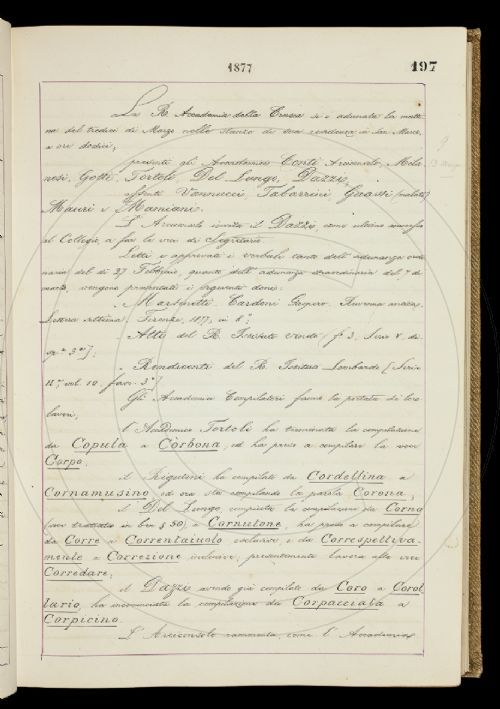 1877
197
La R. Accademia della Crusca si è adunata la matti-
na del tredici di Marzo nelle stanze di sua residenza in San Marco,
a ore dodici,
presenti gli Accademici Conti Arciconsolo, Mila-
nesi, Gotti, Tortoli, Del Lungo, Dazzi,
assenti Vannucci, Tabarrini, Guasti (malato)
Mauri e Mamiani.
L'Arciconsolo invita il Dazzi, come ultimo
al Collegio, a far le veci di Segretario.
Letti e approvati i verbali tanto dell'adunanza ordi-
naria del dì 27 Febbraio, quanto dell'adunanza straordinaria del 7 di
marzo, vengono presentati i seguenti doni:
- Martinetti Cardoni Gaspero. Ravenna antica,
Lettera settima, Firenze, 1877, in 8°;
- Atti del R. Istituto veneto, f° 3, Serie V, di-
sp. 3ª];
- Rendiconti del R. Istituto Lombardo [Serie
IIª, vol. 10. fasc. 3°]
Gli Accademici Compilatori fanno la portata di loro
lavori,
l'Accademico Tortoli ha terminata la compilazione
da Copula a Còrbona, ed ha preso a compilare la voce
Corpo,
il Rigutini ha compilato da Cordellina a
Cornamusino ed ora sta compilando la parola Corona,
il Del Lungo, compiuta la compilazione da Corno
(voce trattata in ben § 50) a Cornutone, ha preso a compilare
da Corre a Correntaiuolo esclusive e da Correspettiva-
mente a Correzione inclusive, presentemente lavora alla voce
Corredare,
il Dazzi avendo già compilato da Coro a Corol-
lario, ha incominciata la compilazione da Corpacciata a
Corpicino.
L'Arciconsolo rammenta come l'Accademia